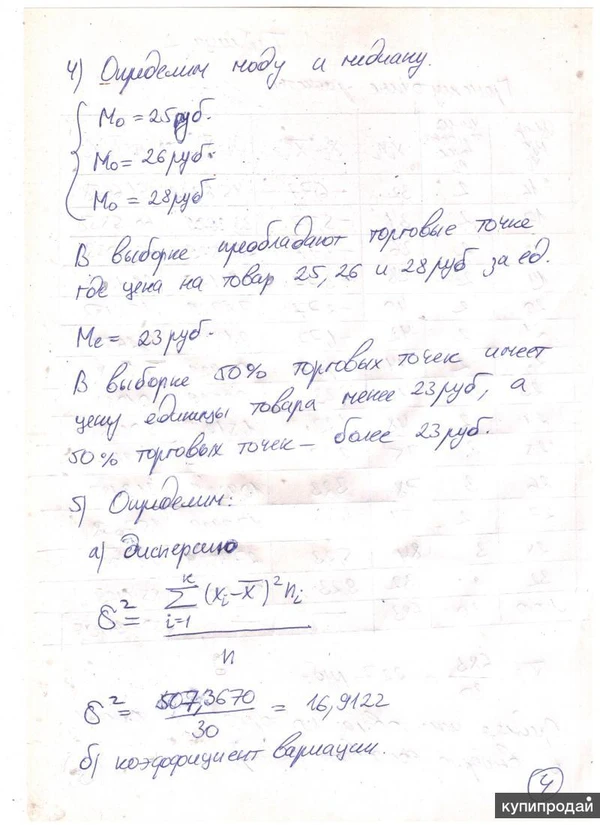 4) Определим моду и медиану.
Mo = 25 руб.
Mo = 26 руб.
Mo = 28 руб
В выборке преобладают торговые точке
где цена на товар 25, 26 и 28 руб за ед.
Me = 23 руб.
В выборке 50% торговых точек имеет
цену единицы товара менее 23 руб, а
50% торговых точек – более 23 руб.
5) Определим:
а) дисперсию
σ² = Σ(xi - x̄)² ni
k
i=1
n
σ² = 507,3670 / 30 = 16,9122
б) коэффициент вариации.
4
купипродай